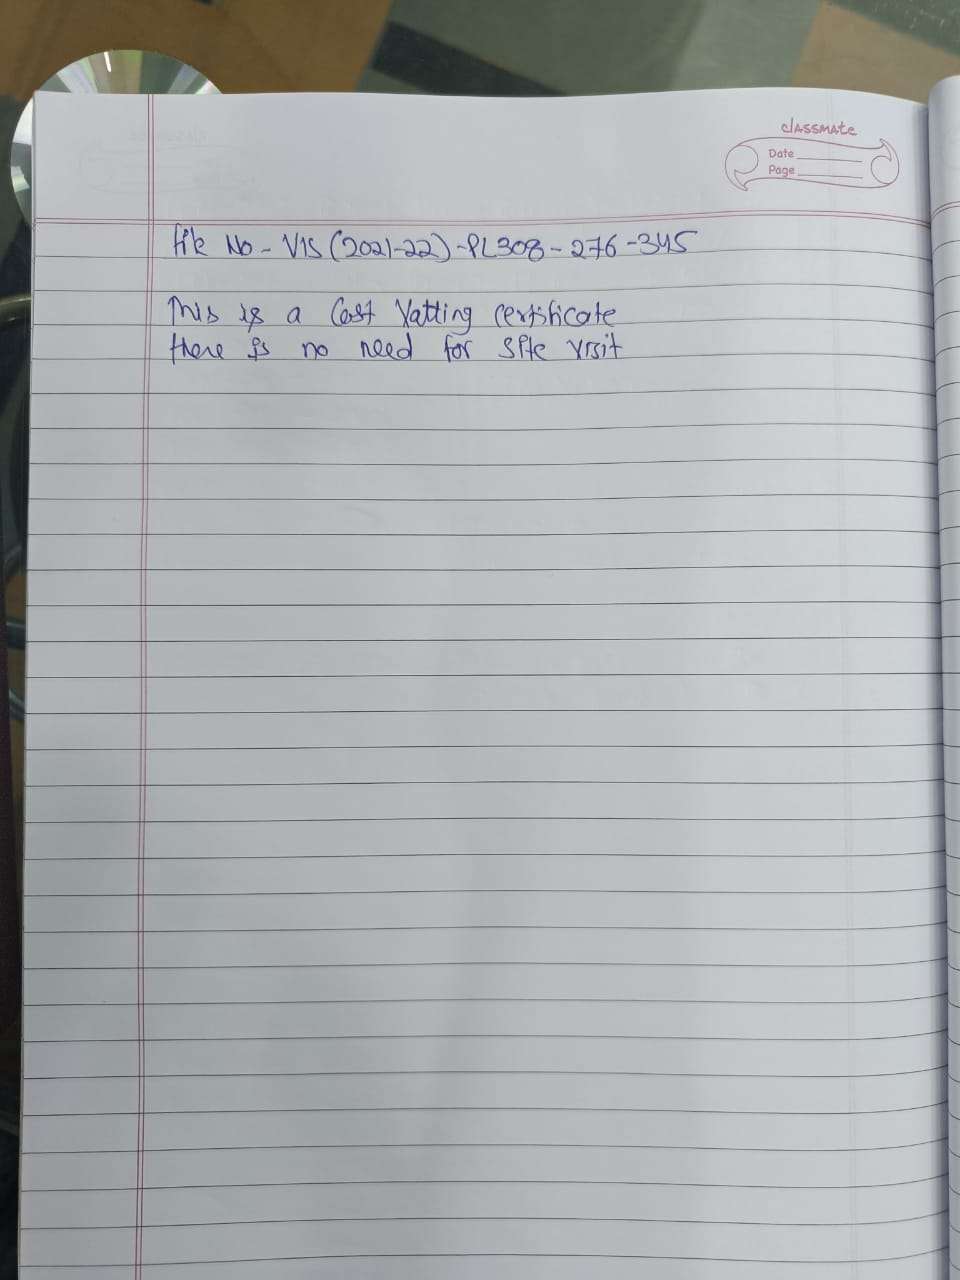 classmate
Date
Page
File No - VIS (2021-22) -PL308 - 276 -345
This is a Cost Vatting certificate
there is no need for site visit